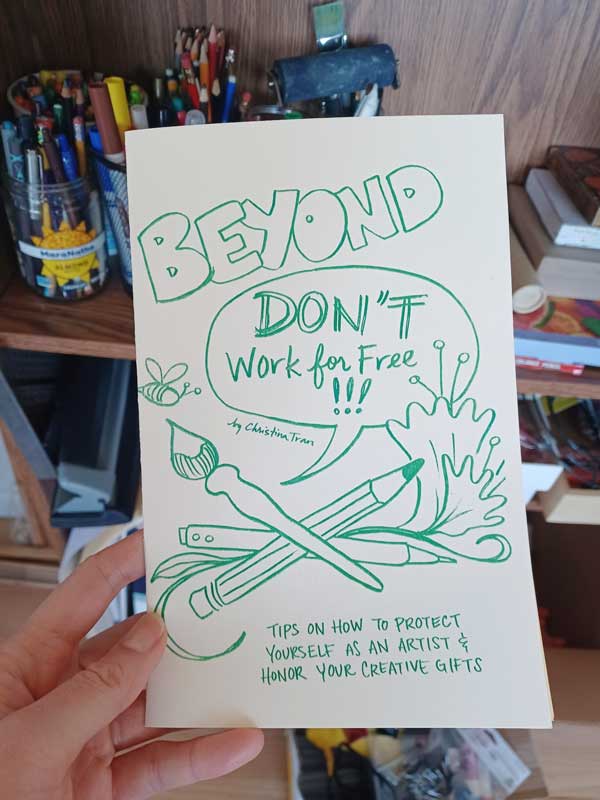 BEYOND
DON'T
Work for Free
!!!
by Christina Tran
TIPS ON HOW TO PROTECT
YOURSELF AS AN ARTIST &
HONOR YOUR CREATIVE GIFTS
MaraNatha
ALMOND